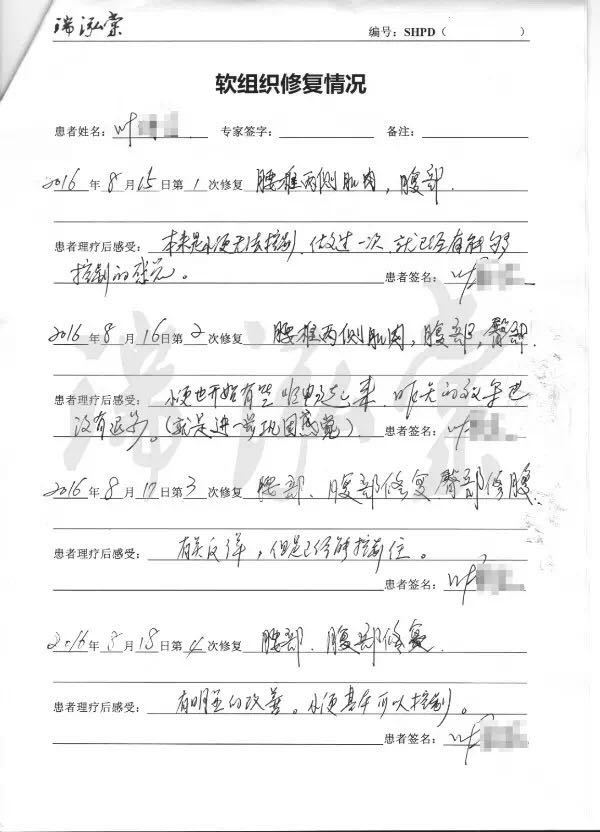 瑞泓棠
编号：SHPD（ ）
软组织修复情况
患者姓名：叶 专家签字： 备注：
2016年8月15日第1次修复 腰椎两侧肌肉，腹部.
患者理疗后感受：本来是小便无法控制，做过一次，就已经有能够
控制的感觉。 患者签名：叶
2016年8月16日第2次修复 腰椎两侧肌肉，腹部，臀部.
患者理疗后感受：小便也开始有些 起来，昨天的效果也
没有退步。（就是进一步巩固感觉） 患者签名：叶
瑞泓棠
2016年8月17日第3次修复 腰部、腹部修复 臀部修复.
患者理疗后感受：有点反弹，但是已经能控制住。
患者签名：叶
2016年8月18日第4次修复 腰部、腹部修复.
患者理疗后感受：有明显的改善。小便基本可以控制。
患者签名：叶